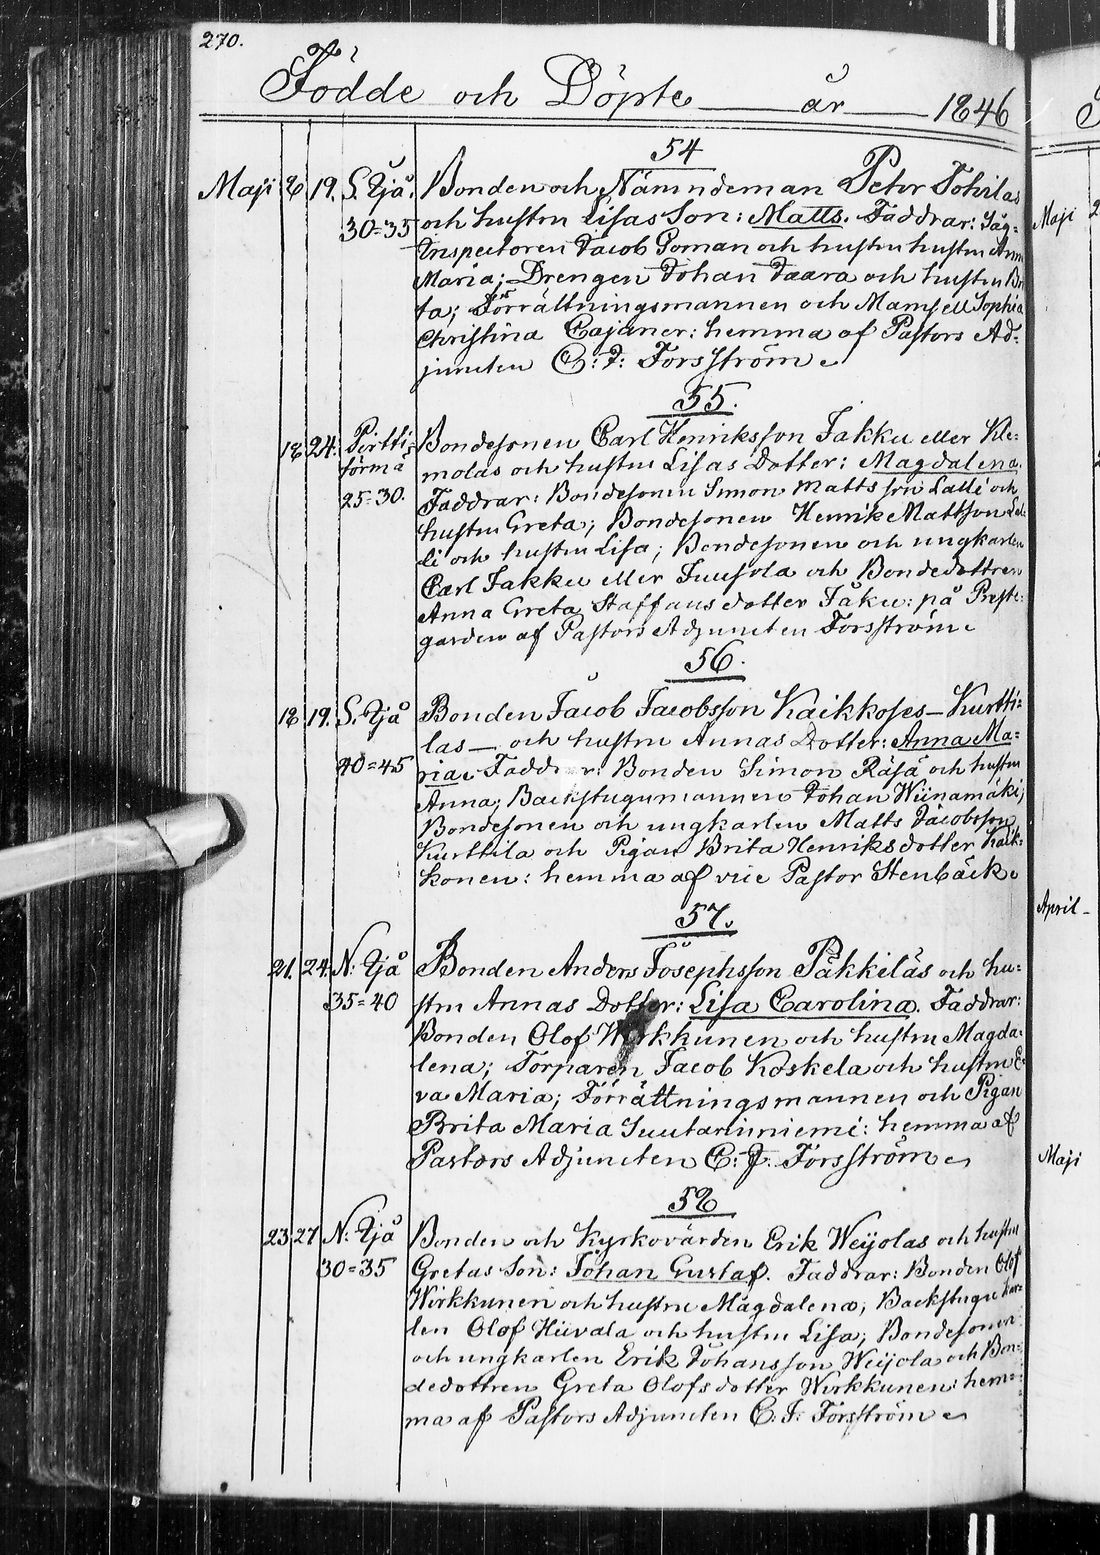 270.
Födde och Döpte år 1846
54
Maji 8 19. S. Ijå. Bonden och Nämndeman Petor Tohilas
30=35 och hustru Lisas Son: Matts. Faddrar: Såg-
Inspectoren Jacob Roman och hustru hustru Anna
Maria; Drengen Johan Jaara och hustru Bri
ta; Förrättningsmannen och Mamsell Sophia
Christina Cajaner: hemma af Pastors Ad-
juncten C: J: Forsström
55.
18 24. Bondesonen Carl Henriksson Jakku eller Kle-
molas och hustru Lisas Dotter: Magdalena.
25=30. Faddrar: Bondesonen Simon Mattsson Lalli och
hustru Greta; Bondesonen Henrik Mattsson Lal-
li och hustru Lisa; Bondesonen och ungkarlen
Carl Jakku eller Juusola och Bondedottren
Anna Greta Staffansdotter Jäku: på Preste-
garden af Pastors Adjuncten Forsström
56.
18 19. S. Ijå Bonden Jacob Jacobsson Kaikkoses-Kurtti-
las- och hustru Annas Dotter: Anna Ma-
40=45 ria. Faddrar: Bonden Simon Räsä och hustru
Anna; Backstugumannen Johan Wiinamäki;
Bondesonen och ungkarlen Matts Jacobsson
Kurttila och Pigan Brita Henriksdotter Kaik-
konen: hemma af vice Pastor Stenbäck
57.
21. 24. N: Ijå Bonden Anders Josephsson Päkkiläs och hu-
35=40 stru Annas Dotter: Lisa Carolina. Faddrar:
Bonden Olof Wirkkunen och hustru Magda-
lena; Torparen Jacob Koskela och hustru E-
va Maria; Förrättningsmannen och Pigan
Brita Maria Suutarinniemi: hemma af
Pastors Adjuncten C: J: Forsström
58
23 27 N: Ijå Bonden och Kyrkovärden Erik Weijolas och hustru
30=35 Gretas Son: Johan Gustaf. Faddrar: Bonden Olof
Wirkkunen och hustru Magdalena; Backstugu kar-
len Olof Hiivala och hustru Lisa; Bondesonen
och ungkarlen Erik Johansson Weijola och Bon-
dedottren Greta Olofsdotter Wirkkunen: hem-
ma af Pastors Adjuncten C. J: Forsström
Maji
April-
Maji